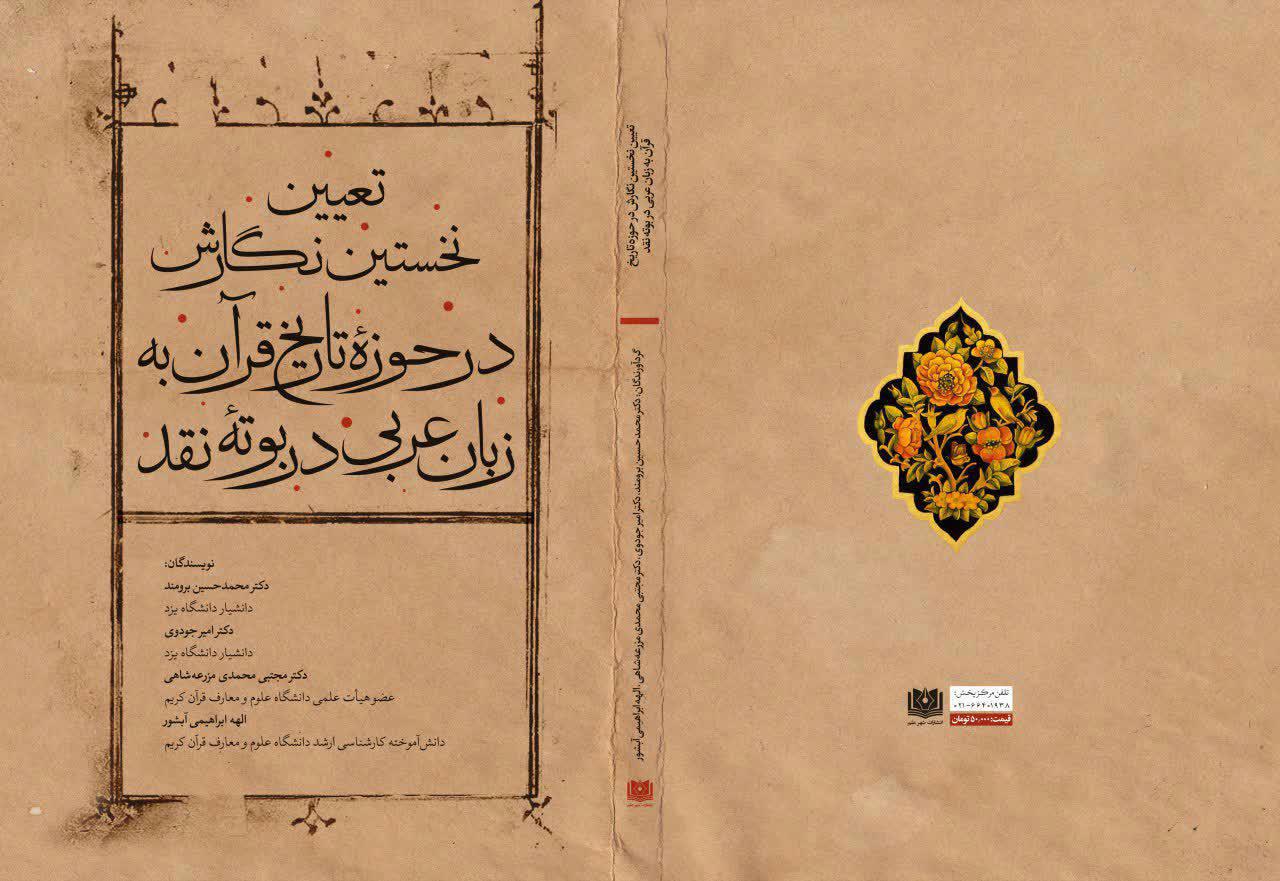 تعیین
نخستین نگارش
در حوزهٔ تاریخ قرآن به
زبان عربی در بوتهٔ نقد
نویسندگان:
دکتر محمدحسین برومند
دانشیار دانشگاه یزد
دکتر امیر جودوی
دانشیار دانشگاه یزد
دکتر مجتبی محمدی مزرعه‌شاهی
عضو هیأت علمی دانشگاه علوم و معارف قرآن کریم
الهه ابراهیمی آبشور
دانش‌آموخته کارشناسی ارشد دانشگاه علوم و معارف قرآن کریم
تعیین نخستین نگارش در حوزه تاریخ
قرآن به زبان عربی در بوته نقد
گردآورندگان: دکتر محمد حسین برومند، دکتر امیر جودوی، دکتر مجتبی محمدی مزرعه شاهی، الهه ابراهیمی آبشور
تلفن مرکز پخش:
۰۲۱-۶۶۴۰۱۹۳۸
قیمت: ۵۰,۰۰۰ تومان